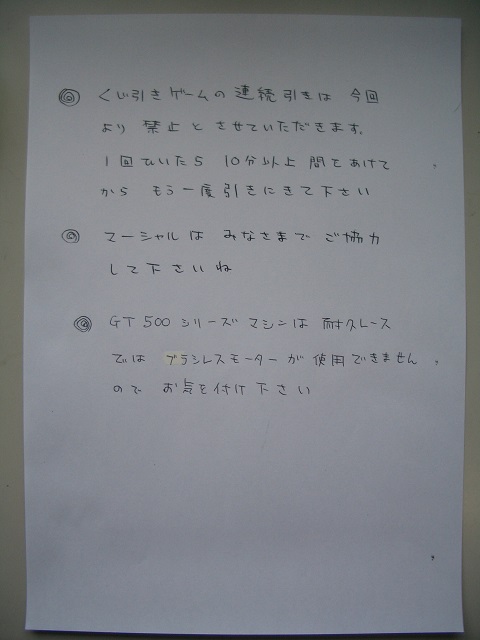 ◎ くじ引きゲームの連続引きは 今回
より 禁止とさせていただきます。
1回ひいたら 10分以上 間をあけて
から もう一度引きにきて下さい
◎ マーシャルは みなさまで ご協力
して下さいね
◎ GT500シリーズマシンは 耐久レース
では ブラシレスモーターが 使用できません
ので お気を付け下さい